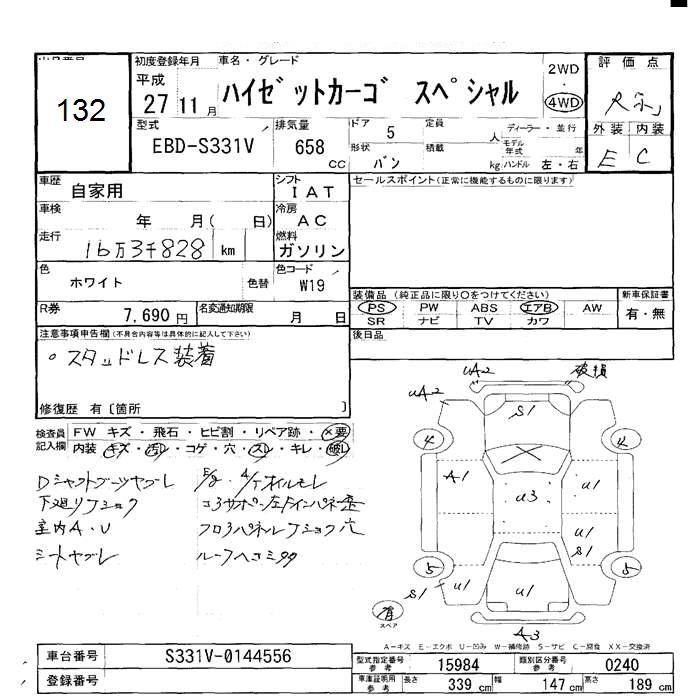 132
初度登録年月
平成
27 11 月
車名・グレード
ハイゼットカーゴ スペシャル
2WD
・
4WD
評価点
外装 内装
E C
型式
EBD-S331V
排気量
658 cc
ドア 5
定員 人
形状 バン
積載 kg
ディーラー・並行
モデル年式 年
ハンドル 左・右
車歴 自家用
シフト IAT
セールスポイント(正常に機能するものに限ります)
車検 年 月( 日)
冷房 AC
走行 16万3千828 km
燃料 ガソリン
色 ホワイト 色替
色コード W19
R券 7,690 円
名変通知期限 月 日
装備品 (純正品に限り○をつけてください)
PS PW ABS エアB AW
SR ナビ TV カワ
新車保証書
有・無
後日品
注意事項申告欄(不具合内容等は具体的に記入して下さい)
。スタッドレス装着
修復歴 有〔箇所 〕
検査員記入欄
FW キズ・飛石・ヒビ割・リペア跡・×要
内装 キズ・汚れ・コゲ・穴・スレ・キレ・破レ
Dシャフトブーツヤブレ
下廻りJショック
室内A.U
シートヤブレ
ルーフヘコミ
UA2
UA2
破損
S1
4
4
A1
U3
U1
U1
S1
5
5
S1
U1
U1
A3
有
スペア
A-キズ E-エクボ U-凹み W-補修跡 S-サビ C-腐食 XX-交換済
車台番号 S331V-0144556
登録番号
型式指定番号 参考 15984
類別区分番号 参考 0240
車庫証明用 参考 長さ 339 cm 幅 147 cm 高さ 189 cm